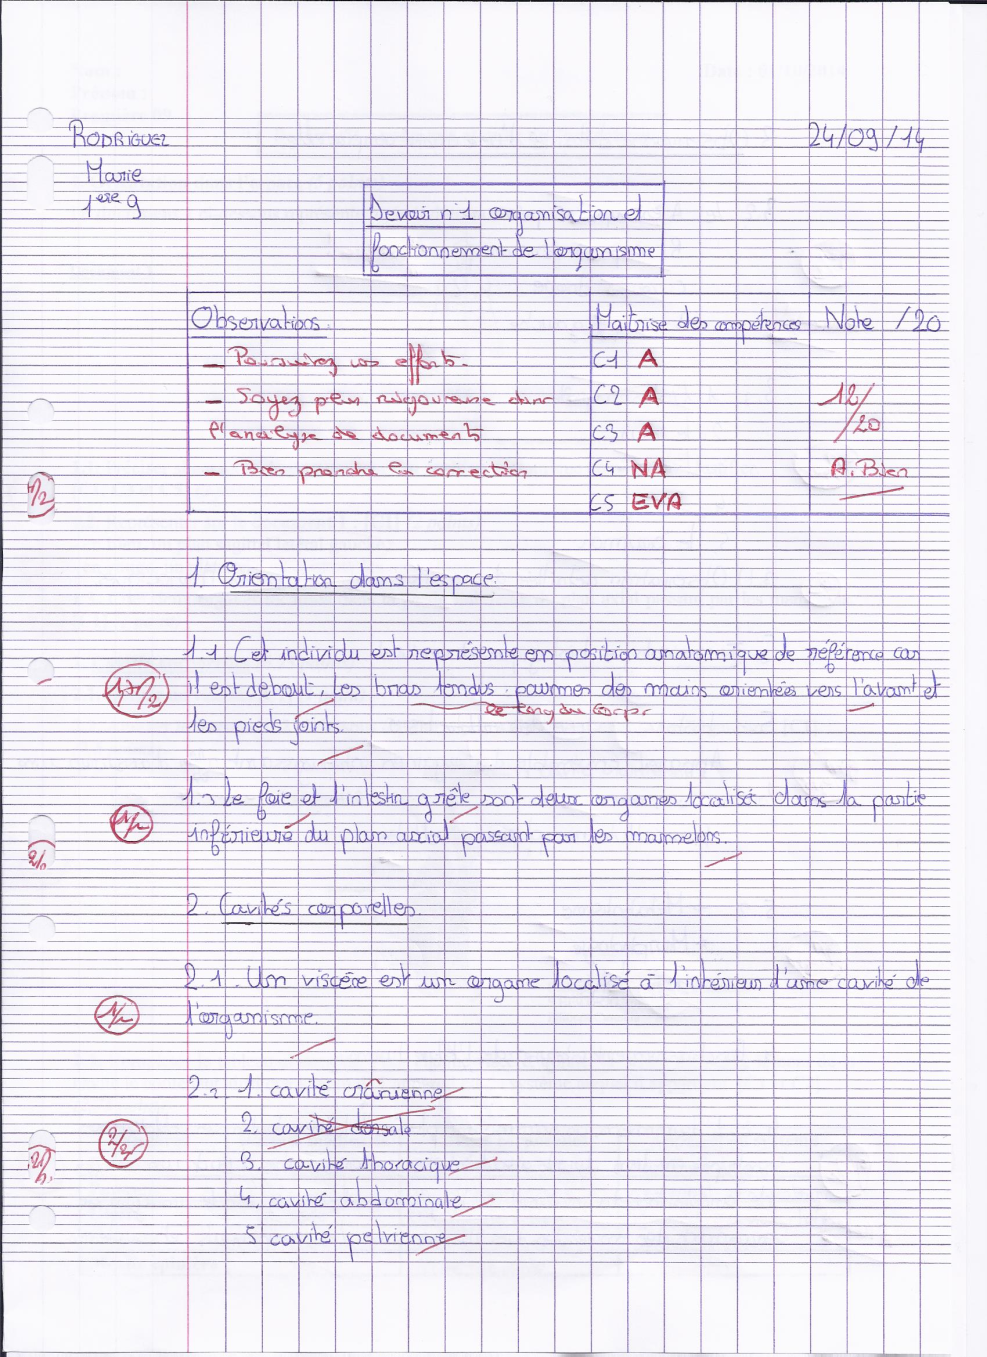 RODRIGUEZ
24/09/14
Marie
1ère 9
Devoir n°1 organisation et
fonctionnement de l'organisme
Observations.
Maitrise des compétences
Note /20
- Poursuivez vos efforts.
C1 A
- Soyez plus rigoureuse dans
C2 A
12/20
l'analyse de documents
C3 A
- Bien prendre la correction
C4 NA
A. Bien
C5 EVA
1. Orientation dans l'espace.
1.1 Cet individu est représenté en position anatomique de référence car
il est debout, les bras tendus, paumes des mains orientées vers l'avant et
le long du corps
les pieds joints.
1.2 Le foie et l'intestin grêle sont deux organes localisé dans la partie
1/2
inférieure du plan axial passant par les mamelons.
2. Cavités corporelles.
2.1. Un viscère est un organe localisé à l'intérieur d'une cavité de
l'organisme.
2.2. 1. cavité crânienne
2. cavité dorsale
3. cavité thoracique
4. cavité abdominale
5 cavité pelvienne